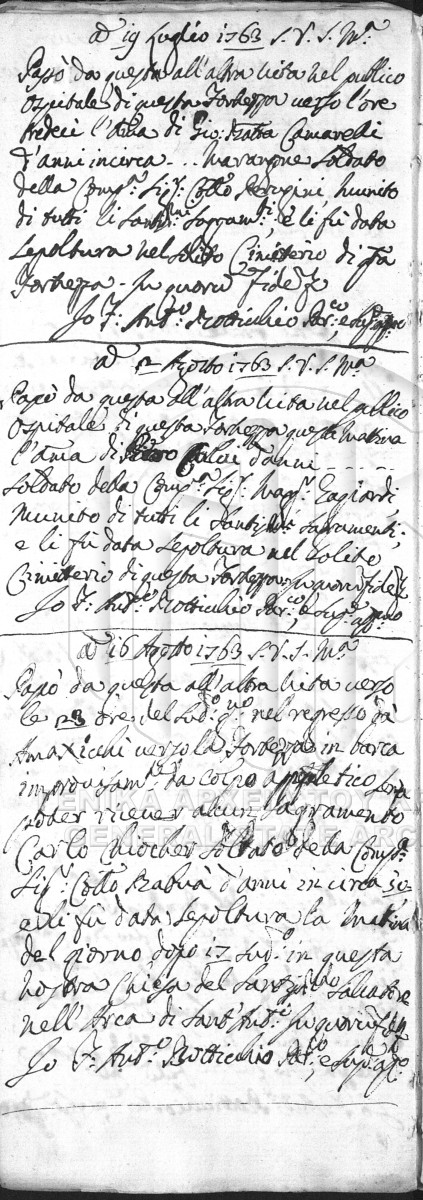 ad 19 Luglio 1763 S. V. S. Mª
Passò da questa all'altra Vita nel publico
Ospitale di questa Fortezza verso l'ore
tredeci l'Ama di Gio: Batta Camarelli
d'anni incirca - - - Marangone Soldato
della Compª Sigr. Collo Perigini, munito
di tutti li Santmi Sagramti, e li fù data
Sepoltura nel solito Cimiterio di qta
Fortezza - In quorum fidem
Io F. Anto Botticchio Parco, e
ad 12 Agosto 1763 S. V. S. Mª
Passò da questa all'altra Vita nel publico
Ospitale di questa Fortezza questa mattina
l'Ama di Calvi d'anni - - - - -
Soldato della Compª Sigr. Magr. Gagiardi,
Munito di tutti li Santmi Sacramenti,
e li fù data Sepoltura nel solito
Cimitterio di questa Fortezza. In quorum fidem
Io F. Anto Botticchio Parco, e
ad 16 Agosto 1763 S. V. S. Mª
Passò da questa all'altra Vita verso
le 23 ore del Sudo gno nel regresso da
Amaxicchi verso la Fortezza in barca
improvisamte da colpo appopletico senza
poder ricever alcun Sagramento
Carlo Chiocher Soldato della Compª
Sigr. Collo d'anni in circa 30
e li fù data Sepoltura la mattina
del giorno dopo 17 Sudo in questa
nostra Chiesa del Santmo Salvatore
nell'Arca di Sant'Anto. In quorum fidem
Io F. Anto Botticchio Parco, e